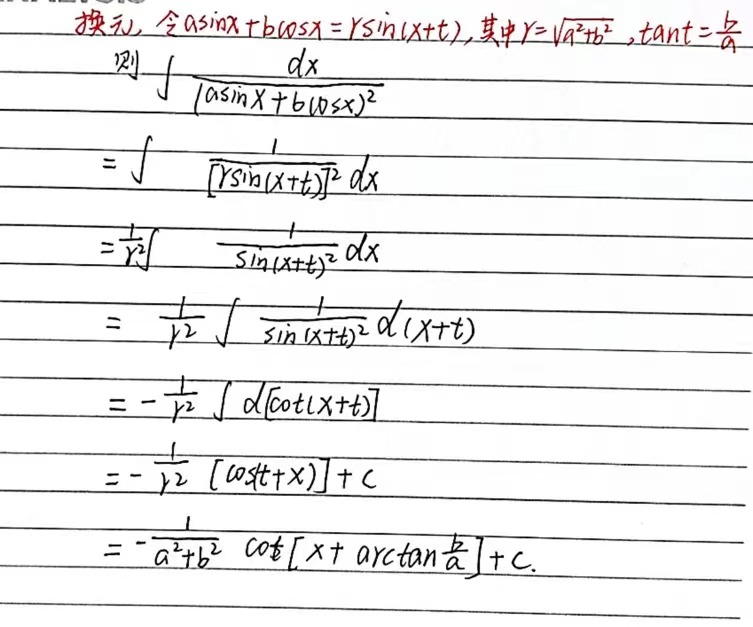 换元, 令asinx+bcosx=rsin(x+t),其中r=√(a²+b²),tant=b/a
则 ∫ dx/(asinx+bcosx)²
= ∫ 1/[rsin(x+t)]² dx
= 1/r² ∫ 1/sin(x+t)² dx
= 1/r² ∫ 1/sin(x+t)² d(x+t)
= -1/r² ∫ d[cot(x+t)]
= -1/r² [cos(t+x)]+c
= -1/(a²+b²) cot[x+arctan b/a]+c.